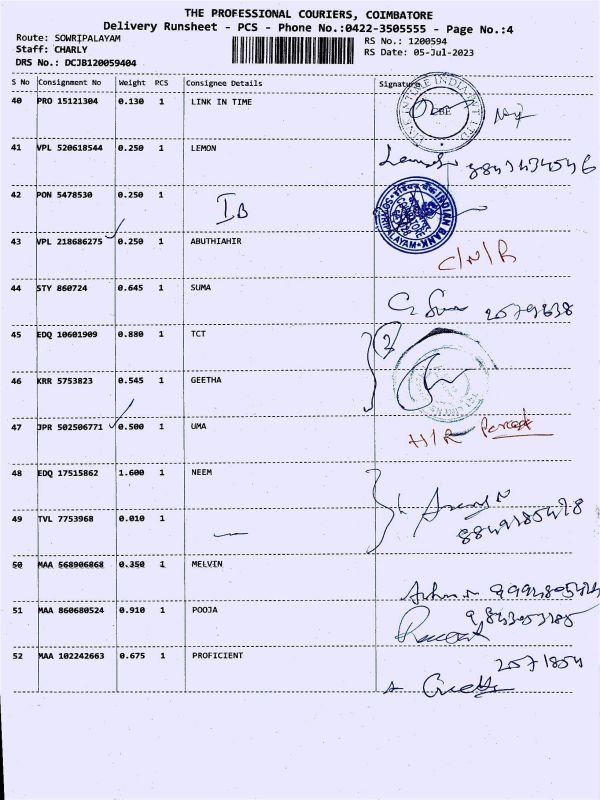 THE PROFESSIONAL COURIERS, COIMBATORE
Delivery Runsheet - PCS - Phone No.:0422-3505555 - Page No.:4
Route: SOWRIPALAYAM
Staff: CHARLY
DRS No.: DCJB120059404
RS No.: 1200594
RS Date: 05-Jul-2023
S No Consignment No Weight PCS Consignee Details Signature
40 PRO 15121304 0.130 1 LINK IN TIME
41 VPL 520618544 0.250 1 LEMON
42 PON 5478530 0.250 1 IB
INDIAN BANK
SOWRIPALAYAM
43 VPL 218686275 0.250 1 ABUTHIAHIR C/N/R
44 STY 860724 0.645 1 SUMA
45 EDQ 10601909 0.880 1 TCT
46 KRR 5753823 0.545 1 GEETHA
47 JPR 502506771 0.500 1 UMA
48 EDQ 17515862 1.600 1 NEEM
49 TVL 7753968 0.010 1
50 MAA 568906868 0.350 1 MELVIN
51 MAA 860680524 0.910 1 POOJA
52 MAA 102242663 0.675 1 PROFICIENT 2571854